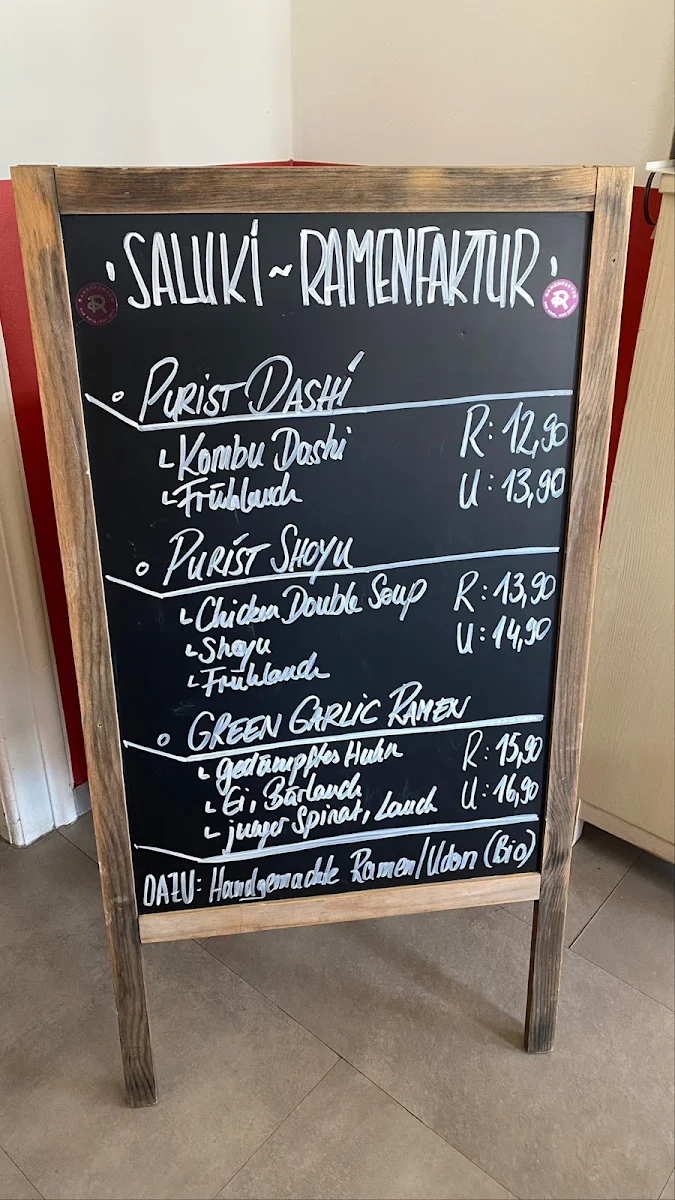 SALUKI ~ RAMENFAKTUR
PURIST DASHI
Kombu Dashi
R: 12,90
Frühlauch
U: 13,90
PURIST SHOYU
Chicken Double Soup
R: 13,90
Shoyu
U: 14,90
Frühlauch
GREEN GARLIC RAMEN
gedämpftes Huhn
R: 15,90
Ei, Bärlauch
U: 16,90
junger Spinat, Lauch
DAZU: Handgemachte Ramen/Udon (Bio)